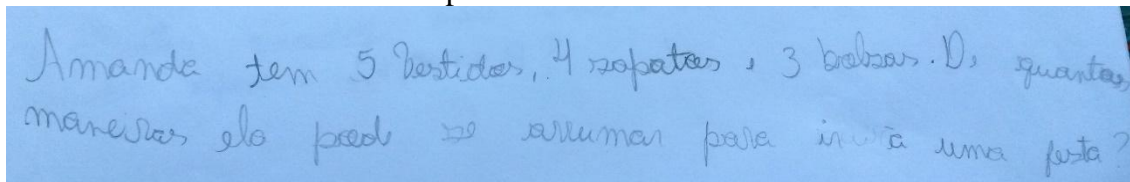 Amanda tem 5 vestidos, 4 sapatos e 3 bolsas. De quantas
maneiras ela pode se arrumar para ir à uma festa?